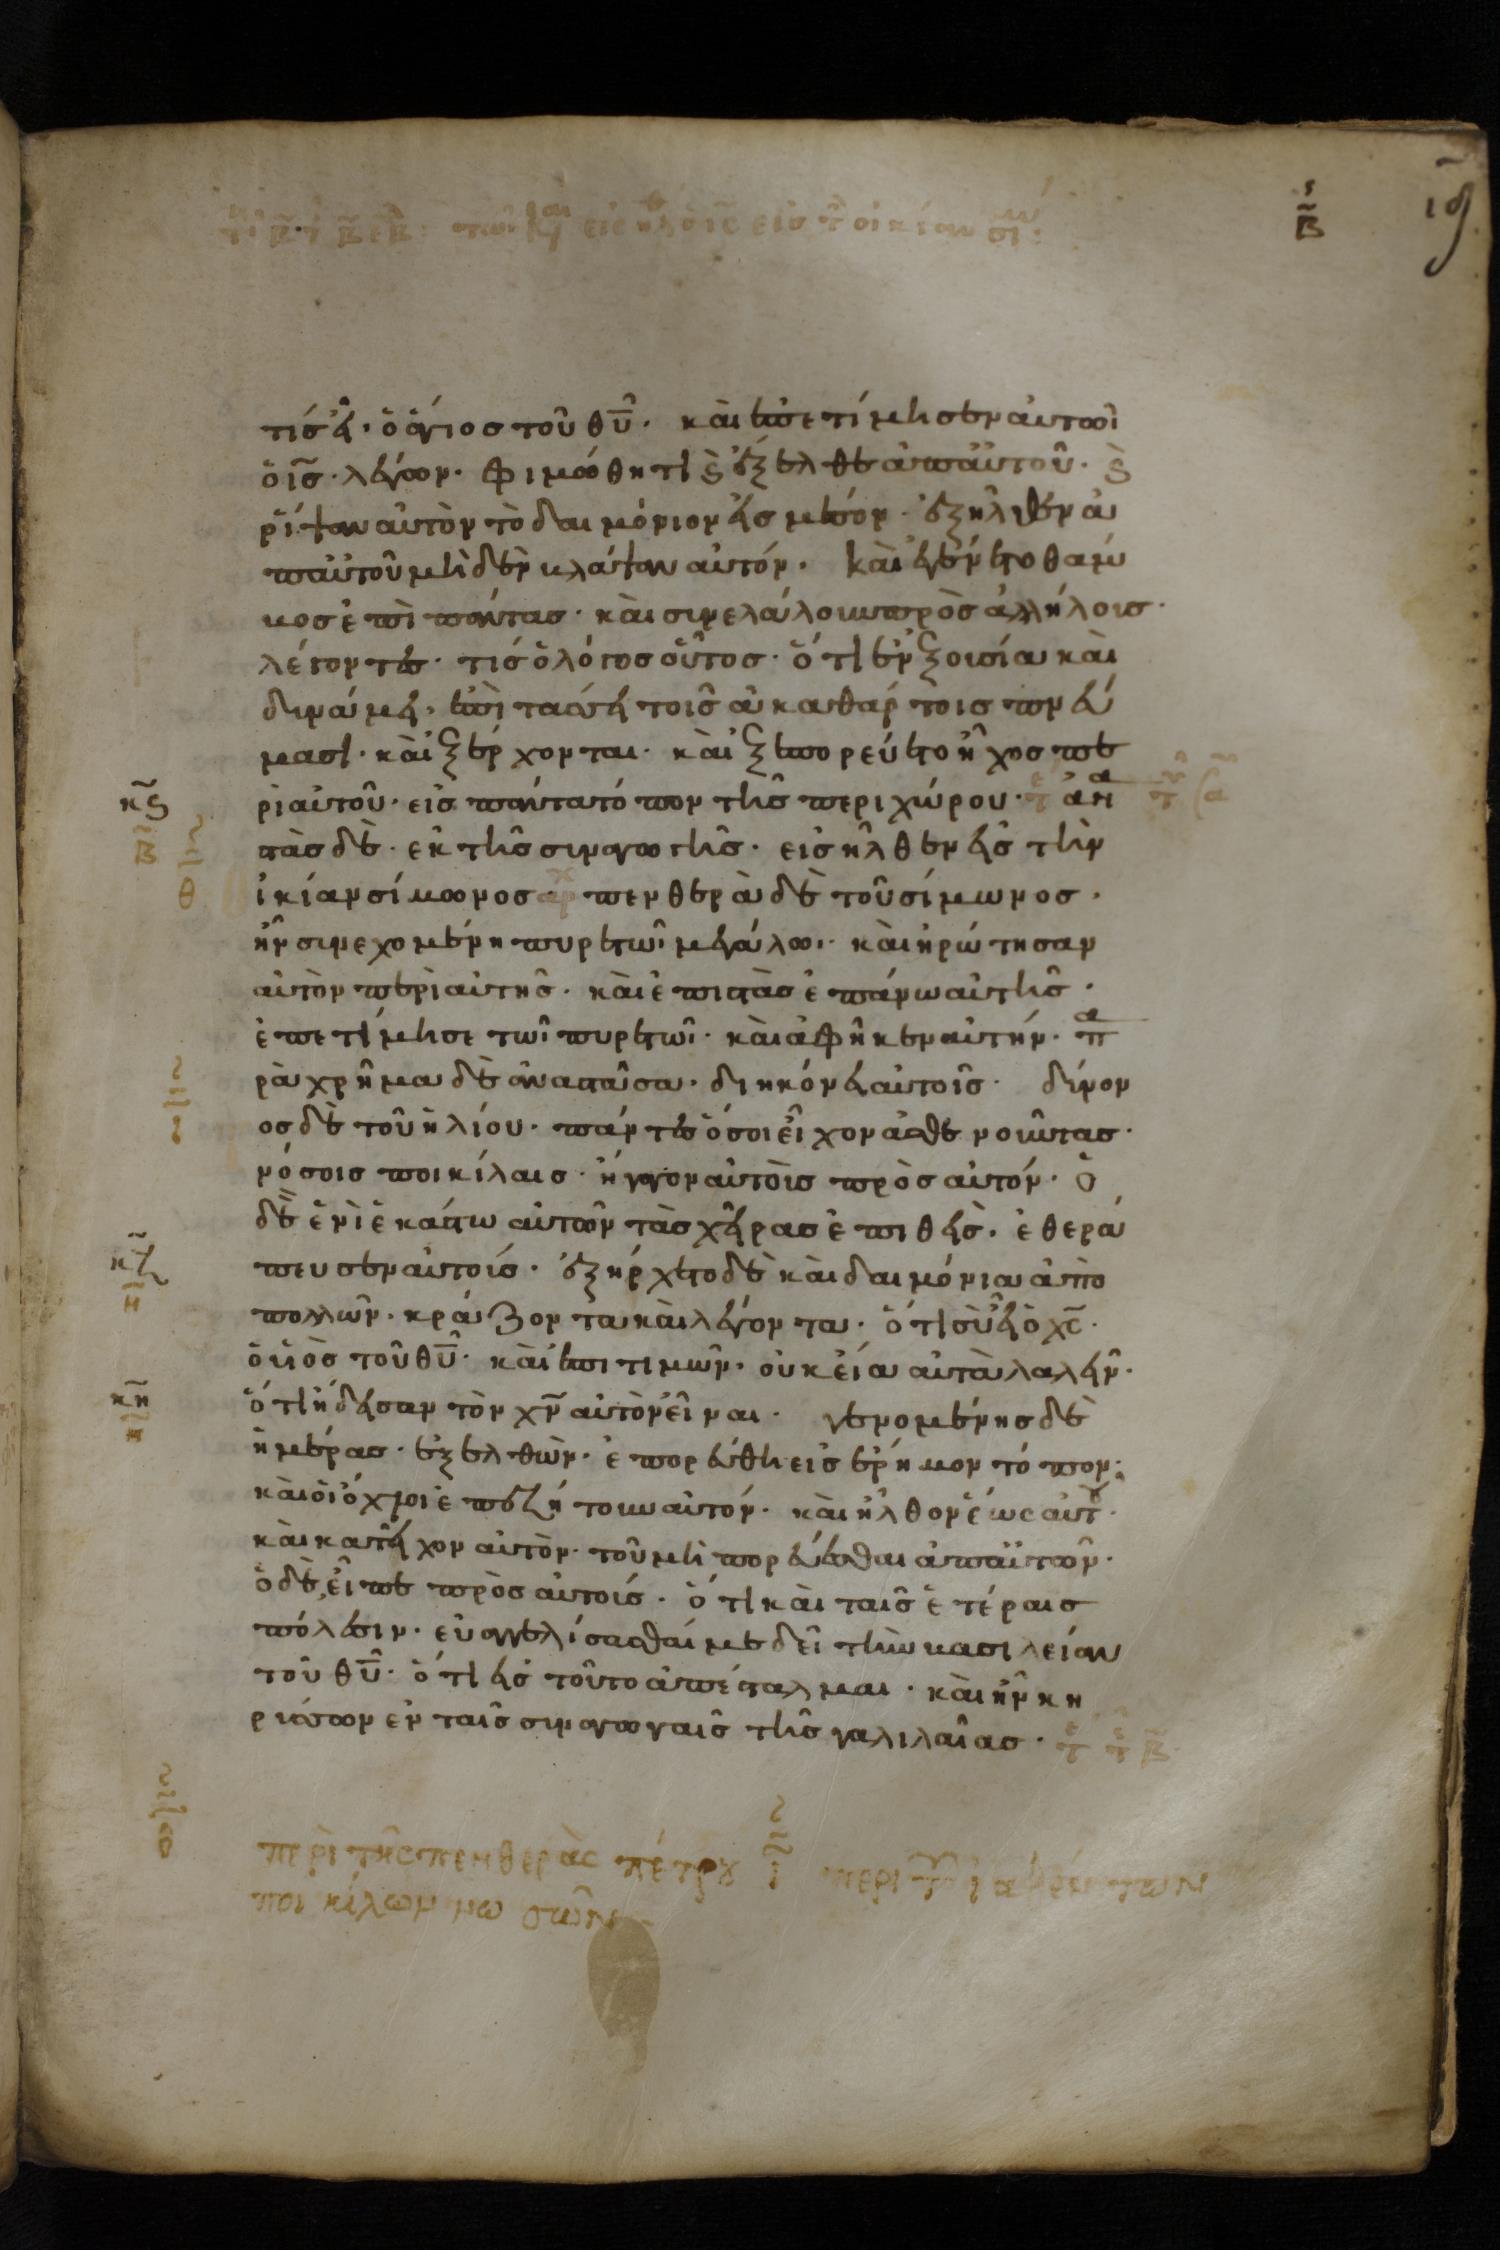 ς
β ιθ
τίς εἶ· ὁ ἅγιος τοῦ θῦ. καὶ ἐπετίμησεν αὐτῶι
ὁ ις̅· λέγων· φιμώθητι καὶ ἔξελθε ἀπ αὐτοῦ· καὶ
ῥίψαν αὐτὸν τὸ δαιμόνιον εἰς μέσον· ἐξῆλθεν ἀ
π αὐτοῦ μηδὲν βλάψαν αὐτόν. καὶ ἐγένετο θάμ
βος ἐπὶ πάντας· καὶ συνελάλουν πρὸς ἀλλήλους·
λέγοντες· τίς ὁ λόγος οὗτος· ὅτι ἐν ἐξουσία καὶ
δυνάμει· ἐπιτάσσει τοῖς ἀκαθάρτοις πνεύ
μασι· καὶ ἐξέρχονται. καὶ ἐξεπορεύετο ἦχος πε
κς ρὶ αὐτοῦ· εἰς πάντα τόπον τῆς περιχώρου· ἀνα
β στὰς δὲ· ἐκ τῆς συναγωγῆς· εἰσῆλθεν εἰς τὴν
θ οἰκίαν σίμωνος πενθερὰ δὲ τοῦ σίμωνος·
ἦν συνεχομένη πυρετῶι μεγάλωι· καὶ ἠρώτησαν
αὐτὸν περὶ αὐτῆς· καὶ ἐπιστὰς ἐπάνω αὐτῆς·
ἐπετίμησε τῶι πυρετῶι· καὶ ἀφῆκεν αὐτήν· πα
ρὰ χρῆμα δὲ ἀναστᾶσα· διηκόνει αὐτοῖς· δύνον
ι ος δὲ τοῦ ἡλίου· πάντες ὅσοι εἶχον ἀσθενοῦντας·
νόσοις ποικίλαις· ἤγαγον αὐτοὺς πρὸς αὐτόν· ὁ
δὲ ἑνὶ ἑκάστω αὐτῶν τὰς χεῖρας ἐπιθεὶς· ἐθερά
κζ πευσεν αὐτούς· ἐξήρχετο δὲ καὶ δαιμόνια ἀπὸ
η πολλῶν· κράζοντα καὶ λέγοντα· ὅτι σὺ εἶ ὁ χς̅·
ὁ υἱὸς τοῦ θῦ· καὶ ἐπιτιμῶν· οὐκ εἴα αὐτὰ λαλεῖν·
κη ὅτι ἤδεισαν τὸν χν̅ αὐτὸν εἶναι· γενομένης δὲ
ἡμέρας· ἐξελθὼν· ἐπορεύθη εἰς ἔρημον τόπον·
καὶ οἱ ὄχλοι ἐπεζήτουν αὐτόν· καὶ ἦλθον ἕως αὐτοῦ·
καὶ κατεῖχον αὐτὸν· τοῦ μὴ πορεύεσθαι ἀπ αὐτῶν·
ὁ δὲ εἶπε πρὸς αὐτούς· ὅτι καὶ ταῖς ἑτέραις
πόλεσιν· εὐαγγελίσασθαί με δεῖ τὴν βασιλείαν
τοῦ θῦ· ὅτι εἰς τοῦτο ἀπέσταλμαι· καὶ ἦν κη
ρύσσων ἐν ταῖς συναγωγαῖς τῆς γαλιλαίας·
περὶ τῆς πενθερᾶς πέτρου ι περὶ τῶν ἰαθέντων
ποικίλων νωσῶν